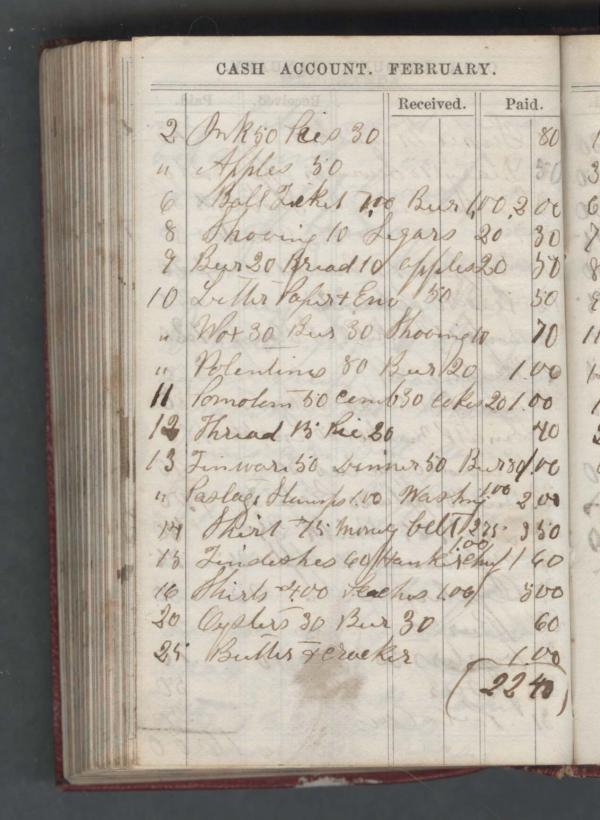 CASH ACCOUNT. FEBRUARY.
Received. Paid.
2 Ink 50 Pies 30 80
" Apples 50 50
6 Ball Ticket 1,00 Beer 1,00 2 00
8 Shoving 10 Segars 20 30
9 Beer 20 Bread 10 apples 20 50
10 Letter Paper + Env 50 50
" Wox 30 Beer 30 Shoving 10 70
" Volentines 80 Beer 20 1.00
11 Pomotom 50 Comb 30 cakes 20 1.00
12 Thread 15 Pie 20 40
13 Tinware 50 Dinner 50 Beer 1.00
" Postage Stamps 1.00 Washing 1.00 2.00
14 Shirt 75 Money belt 2 75 3 50
15 Tindishes 60 Hankerchief 1.00 1 60
16 Shirts 4.00 1.00 5 00
20 Oysters 30 Beer 30 60
25 Butter + cracker 1.00
(22 40)